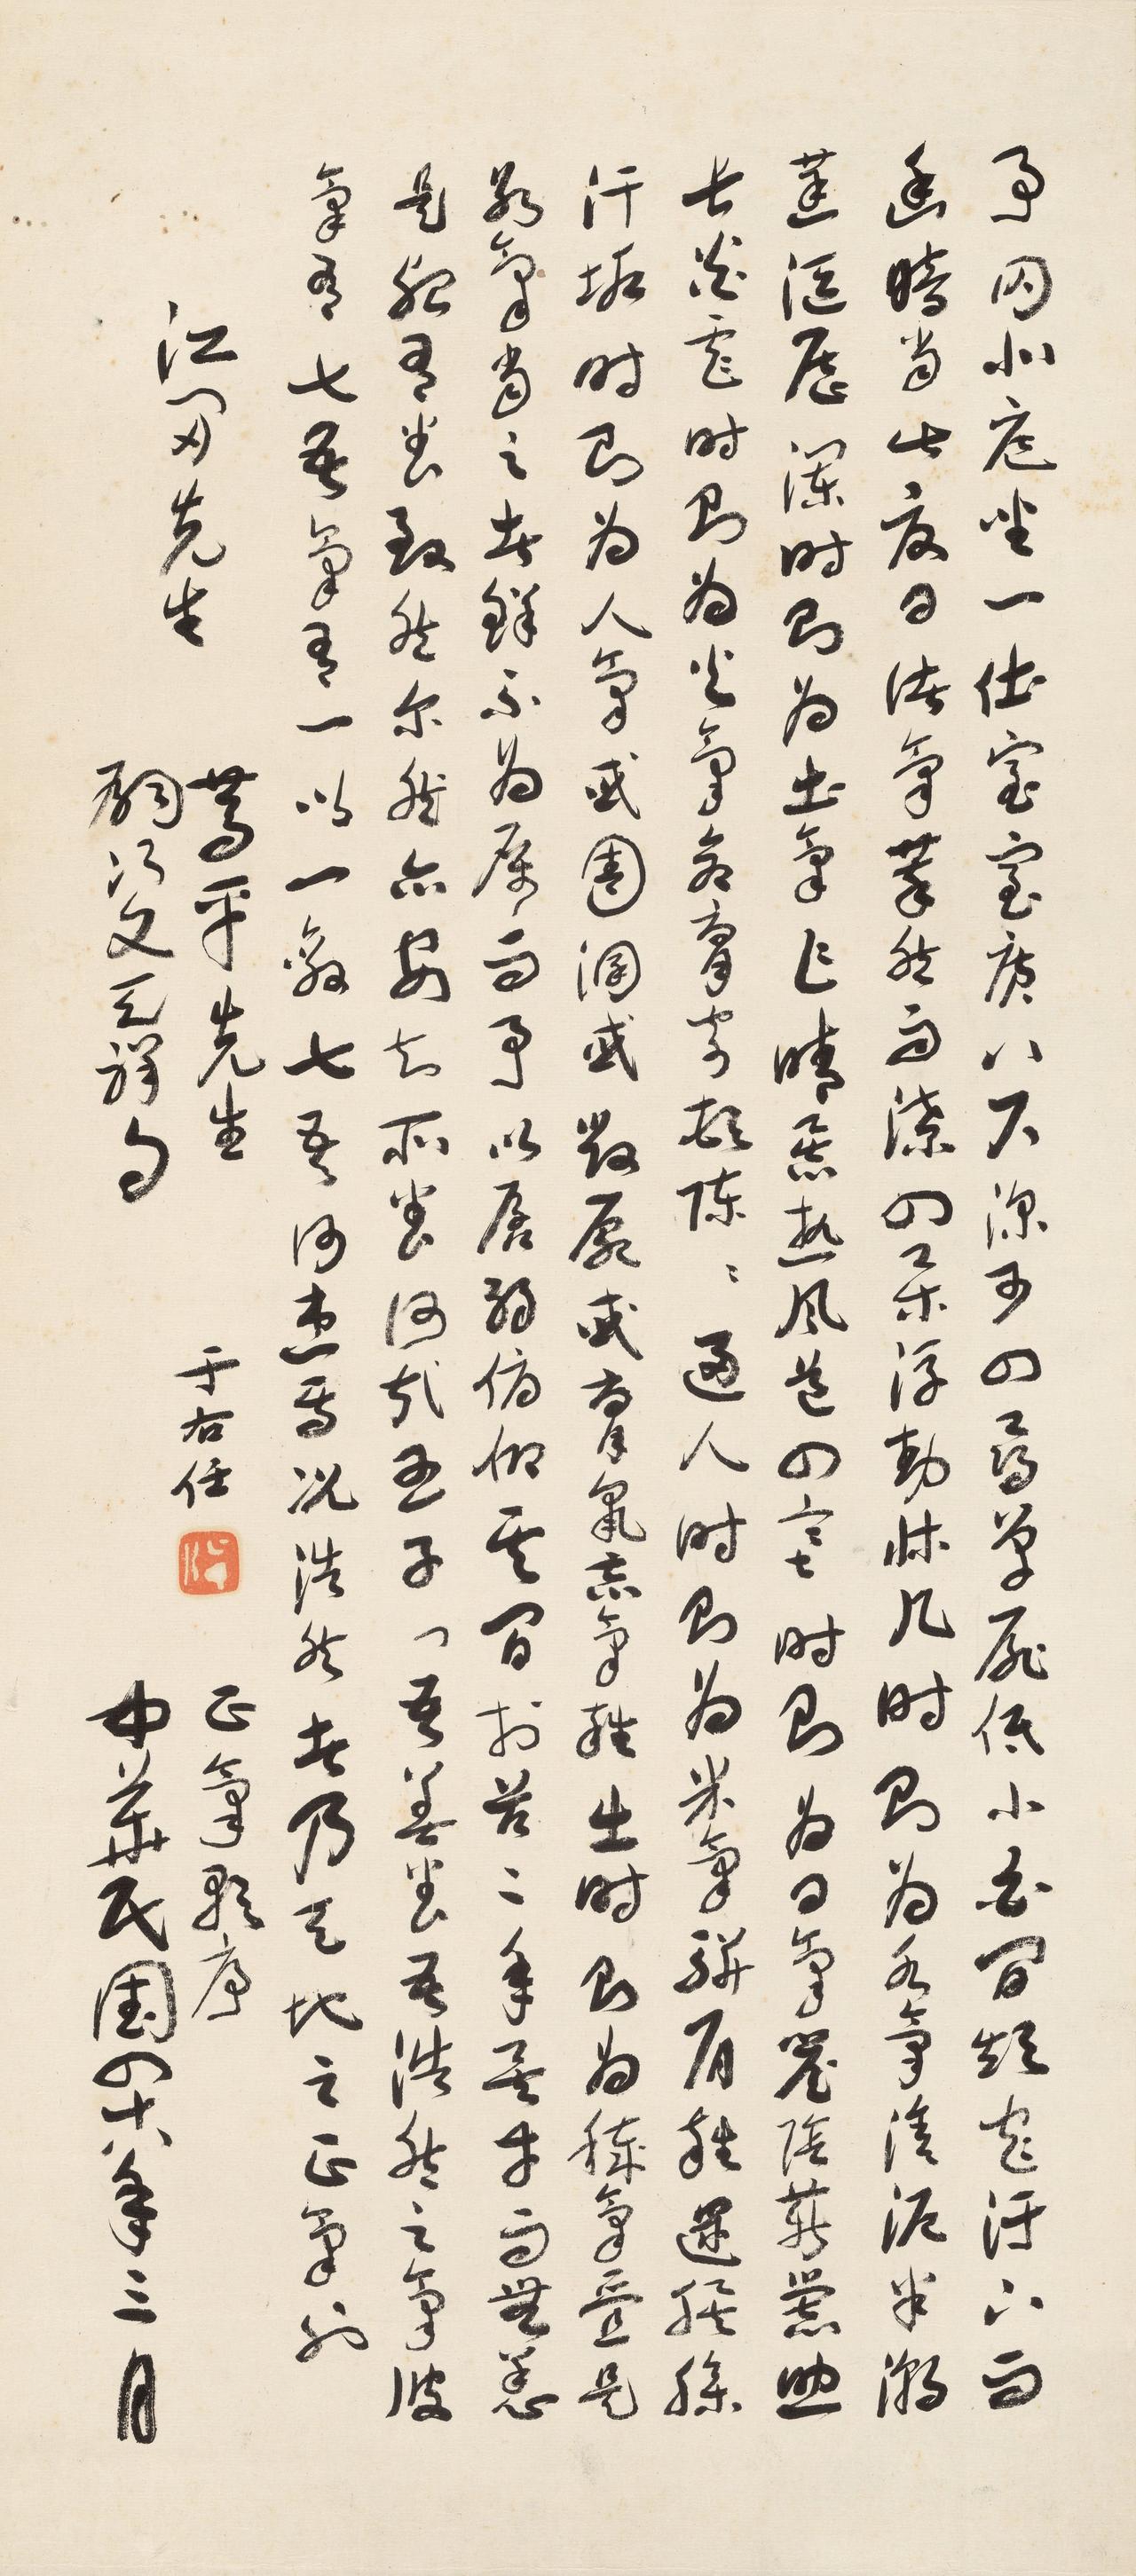 予囚北庭坐一土室室廣八尺深可四尋單扉低小白間短窄汙下而
幽暗當此夏日諸氣萃然雨潦四集浮動牀几時則為水氣塗泥半潮
蒸漚歷瀾時則為土氣乍晴暴熱風道四塞時則為日氣簷陰薪爨助
長炎虐時則為火氣倉腐寄頓陳〻逼人時則為米氣駢肩雜遝腥臊
汗垢時則為人氣或圊溷或毀屍或腐鼠惡氣雜出時則為穢氣疊是
數氣當之者鮮不為厲而予以孱弱俯仰其間於茲二年矣幸而無恙
是殆有養致然爾然亦安知所養何哉孟子曰吾善養吾浩然之氣彼
氣有七吾氣有一以一敵七吾何患焉況浩然者乃天地之正氣也
江先生
平先生
文天祥句
于右任
正氣歌序
中華民國四十八年三月